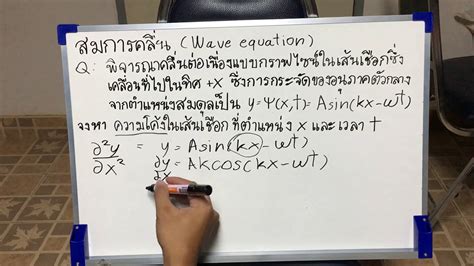 สมการคลื่น (Wave equation)
Q: พิจารณาคลื่นต่อเนื่องแบบกราฟไซน์ในเส้นเชือกซึ่ง
เคลื่อนที่ไปในทิศ +x ซึ่งการกระจัดของอนุภาคตัวกลาง
จากตำแหน่งสมดุลเป็น y = Ψ(x,t) = Asin(kx-ωt)
จงหา ความโค้งในเส้นเชือก ที่ตำแหน่ง x และเวลา t
∂²y/∂x² = y = Asin(kx-ωt)
∂y/∂x = Akcos(kx-ωt)